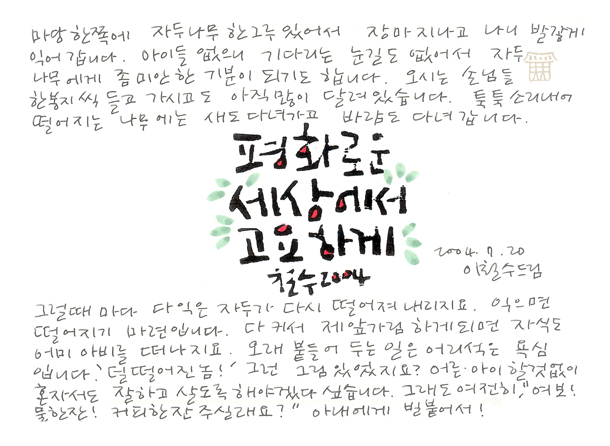 마당 한쪽에 자두나무 한그루 있어서 장마 지나고 나니 발갛게
익어 갑니다. 아이들 없으니 기다리는 눈길도 없어서 자두
나무에게 좀 미안한 기분이 되기도 합니다. 오시는 손님들
한봉지씩 들고 가시고도 아직 많이 달려있습니다. 툭툭 소리내어
떨어지는 나무에는 새도 다녀가고 바람도 다녀 갑니다.
평화로운
세상에서
고요하게
철수 2004
2004. 7. 20
이철수드림
그럴때 마다 다 익은 자두가 다시 떨어져 내리지요. 익으면
떨어지기 마련입니다. 다 커서 제 앞가림 하게되면 자식도
어미 아비를 떠나지요. 오래 붙들어 두는 일은 어리석은 욕심
입니다. '덜 떨어진 놈!' 그런 그림 있었지요? 어른·아이 할것없이
혼자서도 잘하고 살도록 해야겠다 싶습니다. 그래도 여전히, "여보!
물한잔! 커피한잔 주실래요?" 아내에게 빌붙어서!